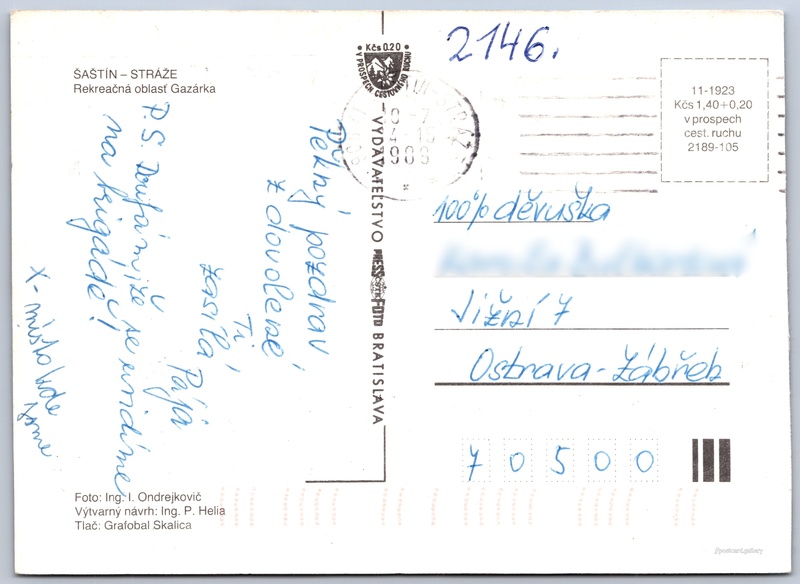 2146.
Kčs 0.20
V PROSPECH CESTOVNÉHO RUCHU
ŠAŠTÍN – STRÁŽE
Rekreačná oblasť Gazárka
11-1923
Kčs 1,40+0,20
v prospech
cest. ruchu
2189-105
Pěkný pozdrav
z dovolené
Ti
zasílá Pája
P.S. Doufám, že se uvidíme
na brigádě!
X - místo kde
jsme
VYDAVATEĽSTVO PRESSFOTO BRATISLAVA
100% děvuška
Jižní 7
Ostrava-Zábřeh
70500
Foto: Ing. I. Ondrejkovič
Výtvarný návrh: Ing. P. Helia
Tlač: Grafobal Skalica